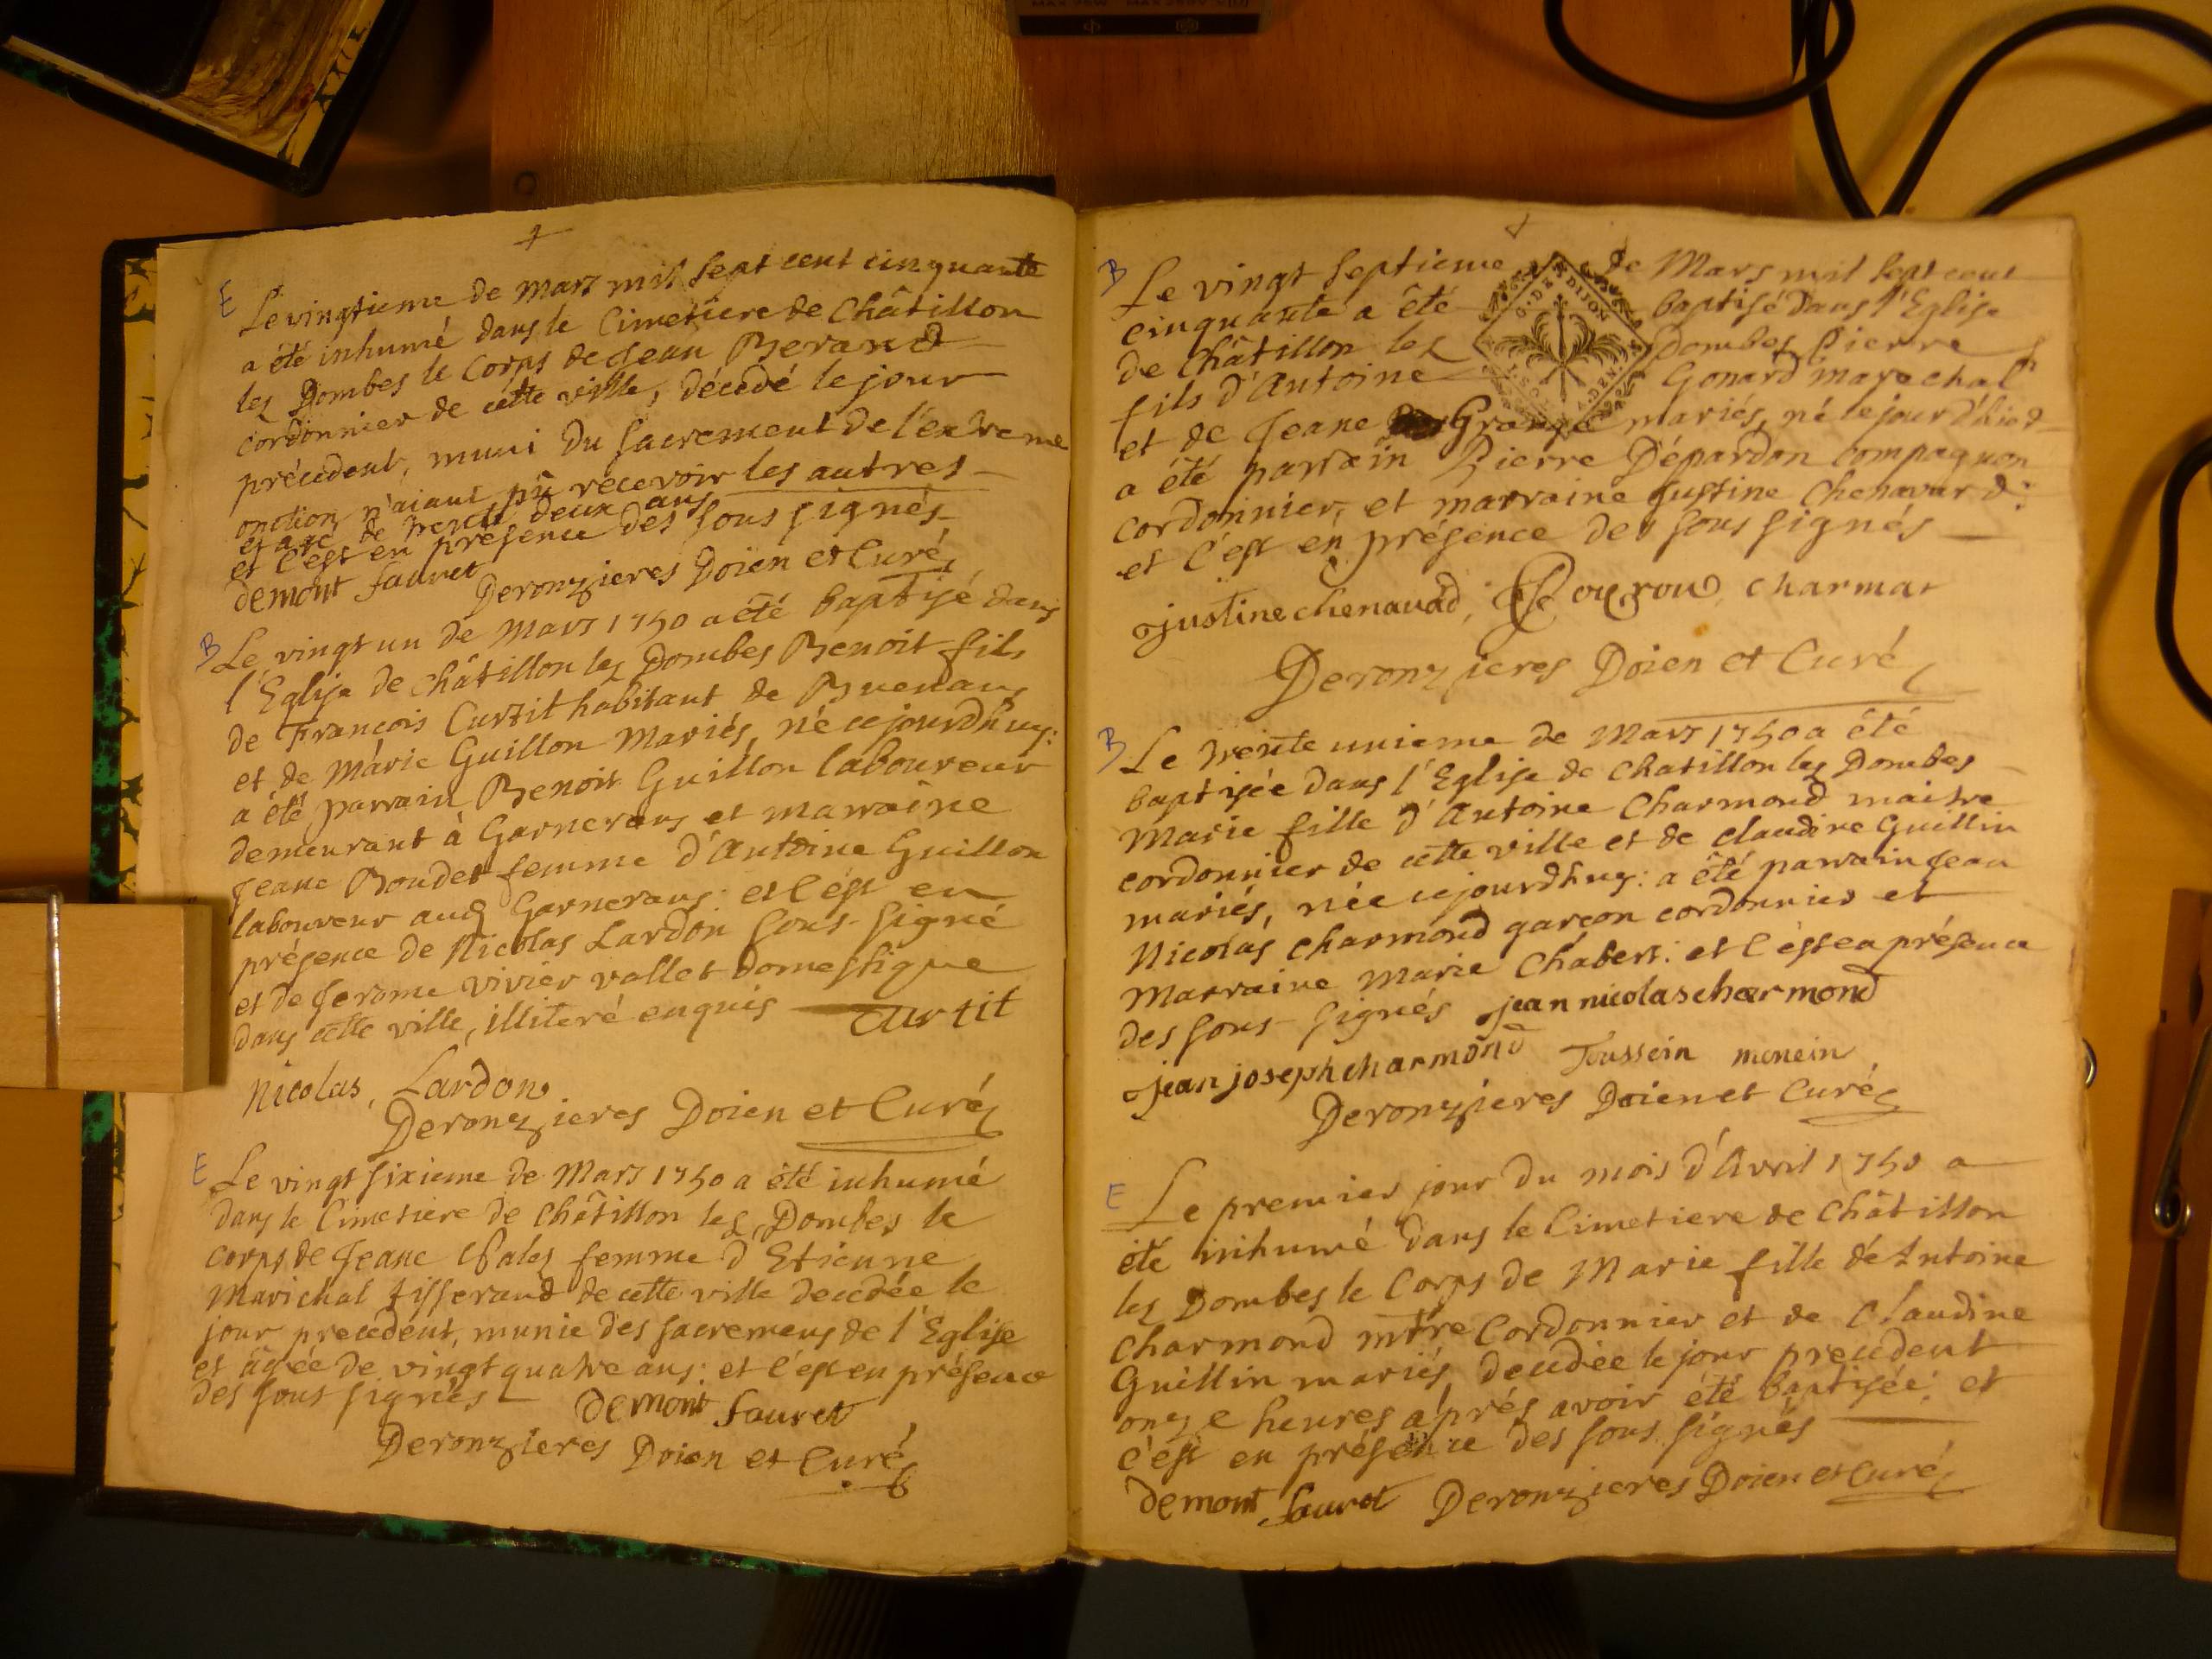 E
Le vingtieme de mars mil sept cent cinquante
a été inhumé dans le Cimetiere de Châtillon
les Dombes le Corps de Jean Berand
cordonnier de cette ville, décedé le jour
précedent, muni du sacrement de l'extreme
onction n'aiant pû recevoir les autres
et agé de trente deux ans
et c'est en présence des sous signés
demont fauvet
Deronzieres Doien et Curé
B
Le vingt un de Mars 1750 a été baptisé dans
l'Eglise de châtillon les Dombes Benoit fils
de François Curtit habitant de Buenans
et de Marie Guillon Mariés, né cejourdhuy:
a été parrain Benoit Guillon laboureur
demeurant à Garnerans et marraine
Jeane Boudet femme d'Antoine Guillon
laboureur aud Garnerans: et c'est en
présence de Nicolas Lardon sous-signé
et de Jerome vivier vallet Domestique
dans cette ville, illiteré enquis Curtit
Nicolas, Lardon
Deronzieres Doien et Curé
E
Le vingt sixieme de Mars 1750 a été inhumé
dans le Cimetiere de Châtillon les Dombes le
corps de Jeane femme d'Etienne
Marichal tisserand de cette ville decedée le
jour precedent, munie des sacremens de l'Eglise
et âgée de vingt quatre ans: et c'est en présence
des sous signés demont fauvet
Deronzieres Doien et Curé
B
Le vingt septieme de Mars mil sept cent
G. DE DIJON
cinquante a été baptisé dans l'Eglise
de Châtillon les Dombes Pierre
fils d'Antoine Gonard marechal
et de Jeane Grange mariés, né le jour d'hier
a été parrain Pierre Dépardon compagnon
cordonnier, et marraine Justine Chenavard:
et c'est en présence des sous signés
justine chenavad, charmat
Deronzieres Doien et Curé
B
Le trente unieme de Mars 1750 a été
baptisée dans l'Eglise de Chatillon les Dombes
Marie fille d'Antoine Charmond maitre
cordonnier de cette ville et de claudine Guillin
mariés, née cejourdhuy: a été parrain Jean
Nicolas Charmond garçon cordonnier et
Marraine Marie Chabert: et c'est en présence
des sous-signés jean nicolas charmond
jean joseph charmond Toussein monein
Deronzieres Doien et Curé
E
Le premier jour du mois d'Avril 1750 a
été inhumé dans le Cimetiere de Châtillon
les Dombes le Corps de Marie fille de Antoine
Charmond mtre Cordonnier et de Claudine
Guillin mariés decedée le jour precedent
onze heures aprés avoir été baptisée; et
c'est en présence des sous signés
demont fauvet Deronzieres Doien et Curé